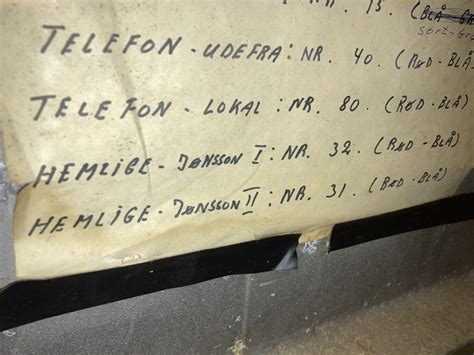 13. (BLÅ
sort-Grø
TELEFON - UDEFRA: NR. 40. (RØD - BLÅ
TELEFON - LOKAL: NR. 80. (RØD - BLÅ)
HEMLIGE - JØNSSON I: NR. 32. (RØD - BLÅ)
HEMLIGE - JØNSSON II: NR. 31. (RØD - BLÅ)